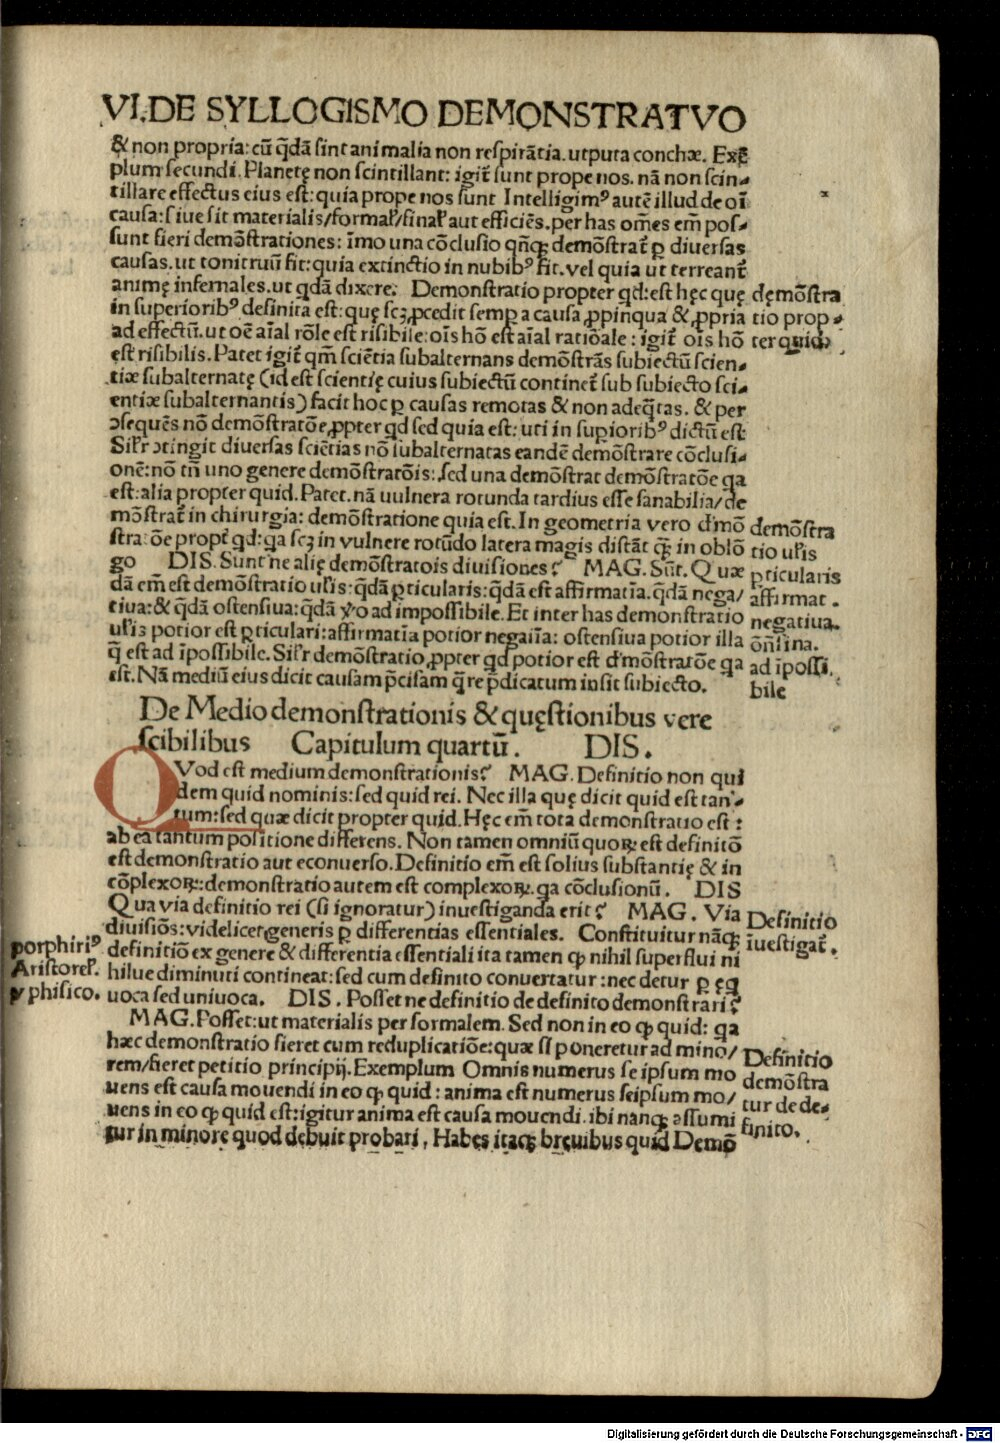 VI. DE SYLLOGISMO DEMONSTRATVO
& non propria: cū q̄dā sint animalia non respirātia. utputa conchæ. Exē
plum secundi. Planetę non scintillant: igit̄ sunt prope nos. nā non scin-
tillare effectus eius est: quia prope nos sunt Intelligimꝰ autē illud de oī
causa: siue sit materialis/formal̕/final̕ aut efficiēs. per has om̄es em̄ pos-
sunt fieri demōstrationes: īmo una cōclusio qn̄qꝫ demōstrat̄ ꝑ diuersas
causas. ut tonitruū fit: quia extinctio in nubibꝰ fit. vel quia ut terreant̄
animę infernales. ut qdā dixere. Demonstratio propter qd: est hęc quę
in superioribꝰ definita est: quę scꝫ, ꝓcedit semꝑ a causa ꝓpinqua & ꝓpria
ad effectū. ut oē aīal rōle est risibile: oīs hō est aīal ratiōale: igit̄ oīs hō
est risibilis. Patet igit̄ qm̄ sciētia subalternans demōstrās subiectū scien-
tiæ subalternatę (id est scientię cuius subiectū continet̄ sub subiecto sci-
entiæ subalternantis) facit hoc ꝑ causas remotas & non adeq̄tas. & per
ꝯseqūes nō demōstratōe ꝓpter qd sed quia est: uti in suꝑioribꝰ dictū est
Sil̕r ꝯtingit diuersas sciētias nō subalternatas eandē demōstrare cōclusi-
onē: nō tn̄ uno genere demōstratōis: sed una demōstrat demōstratōe qa
est: alia propter quid. Patet. nā uulnera rotunda tardius esse sanabilia/de
mōstrat̄ in chirurgia: demōstratione quia est. In geometria vero d̕mō
stra:ōe propt̄ qd: qa scꝫ in vulnere rotūdo latera magis distāt qꝫ in oblō
go DIS. Sunt ne alię demōstratois diuisiones? MAG. Sūt. Quæ
dā em̄ est demōstratio ul̕is: q̄dā ꝑticularis: q̄dā est affirmatīa. q̄dā nega/
tiua: & q̄dā ostensiua: q̄dā ꝟo ad impossibile. Et inter has demonstratio
ul̕is potior est ꝑticulari: affirmatīa potior negatīa: ostensiua potior illa
q̄ est ad īpossibile. Sil̕r demōstratio ꝓpter qd potior est d̕mōstratōe qa
est. Nā mediū eius dicit causam p̄cisam q̄re p̄dicatum insit subiecto.
demōstra
tio prop-
ter quid
demōstra
tio ul̕is
ꝑticularis
affirmat.
negatiua.
ad īpossi.
bile
De Medio demonstrationis & quęstionibus vere
scibilibus Capitulum quartū. DIS.
QVod est medium demonstrationis? MAG. Definitio non qui
dem quid nominis: sed quid rei. Nec illa quę dicit quid est tan-
tum: sed quæ dicit propter quid. Hęc em̄ tota demonstratio est:
ab ea tantum positione differens. Non tamen omniū quoꝝ est definitō
est demonstratio aut econuerso. Definitio em̄ est solius substantię & in
cōplexoꝝ: demonstratio autem est complexoꝝ. qa cōclusionū. DIS
Qua via definitio rei (si ignoratur) inuestiganda erit? MAG. Via
diuisiōs: videlicet generis ꝑ differentias essentiales. Constituitur nāqꝫ
definitiō ex genere & differentia essentiali ita tamen qꝫ nihil superflui ni
hilue diminuti contineat: sed cum definito conuertatur: nec detur ꝑ eq
uoca sed uniuoca. DIS. Posset ne definitio de definito demonstrari?
MAG. Posset: ut materialis per formalem. Sed non in eo qꝫ quid: qa
hæc demonstratio fieret cum reduplicatiōe: quæ si poneretur ad mino/
rem/fieret petitio principij. Exemplum Omnis numerus se ipsum mo
uens est causa mouendi in eo qꝫ quid: anima est numerus seipsum mo/
uens in eo qꝫ quid est: igitur anima est causa mouendi. ibi nanqꝫ assumi
tur in minore quod debuit probari. Habes itaqꝫ breuibus quid Demō
Definitio
īuestigat̄.
porphiriꝰ
Aristotel̕.
ꝟ phisico.
Definitio
demōstra
tur de de-
finito.
Digitalisierung gefördert durch die Deutsche Forschungsgemeinschaft - DFG